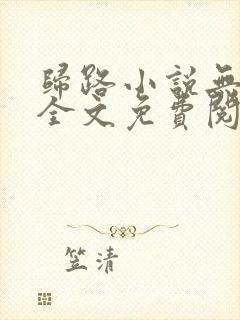 歸路小說無
全文免費閱
笠清